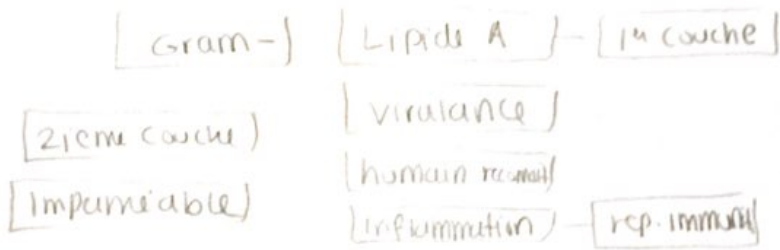 Gram - Lipide A 1re couche
virulance
2ieme couche
humain reconnait
Imperméable
inflammation rep. immuni